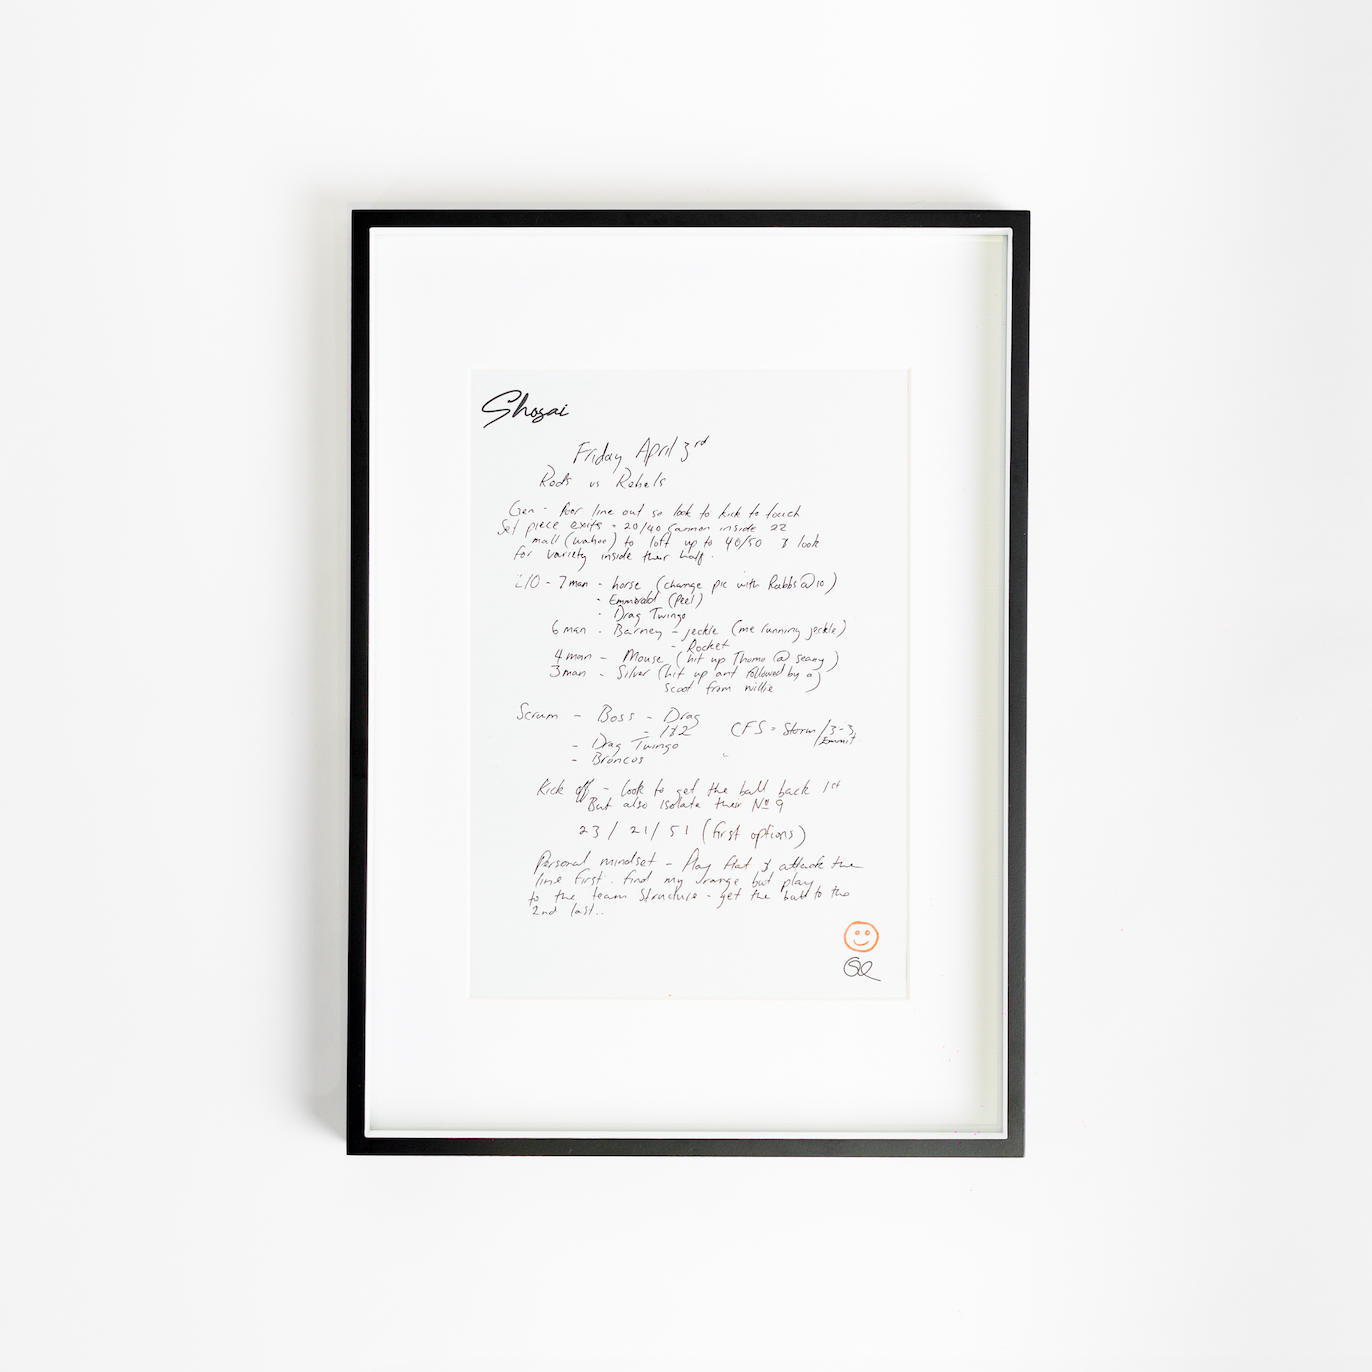 Shosai
Friday April 3rd
Reds vs Rebels
Gen - Poor line out so look to kick to touch
Set piece exits = 20/40 Cannon inside 22
mall (wahoo) to loft up to 40/50 & look
for variety inside their half.
L/O - 7man - horse (change pic with Rabbs @ 10)
- Emmorald (Peel)
- Drag Twingo
6 man - Barney - jeckle (me running jeckle)
- Rocket
4 man - Mouse (hit up Thomo @ seany)
3man - Silver (hit up ant followed by a)
scoot from willie
Scrum - Boss - Drag
- 1&2 CFS = Storm/3-3
/Emmit
- Drag Twingo
- Broncos
Kick off - Look to get the ball back 1st
But also isolate their No 9
23 / 21 / 51 (first options)
Personal mindset - Play flat & attack the
line first. find my range but play
to the team structure - get the ball to the
2nd last..